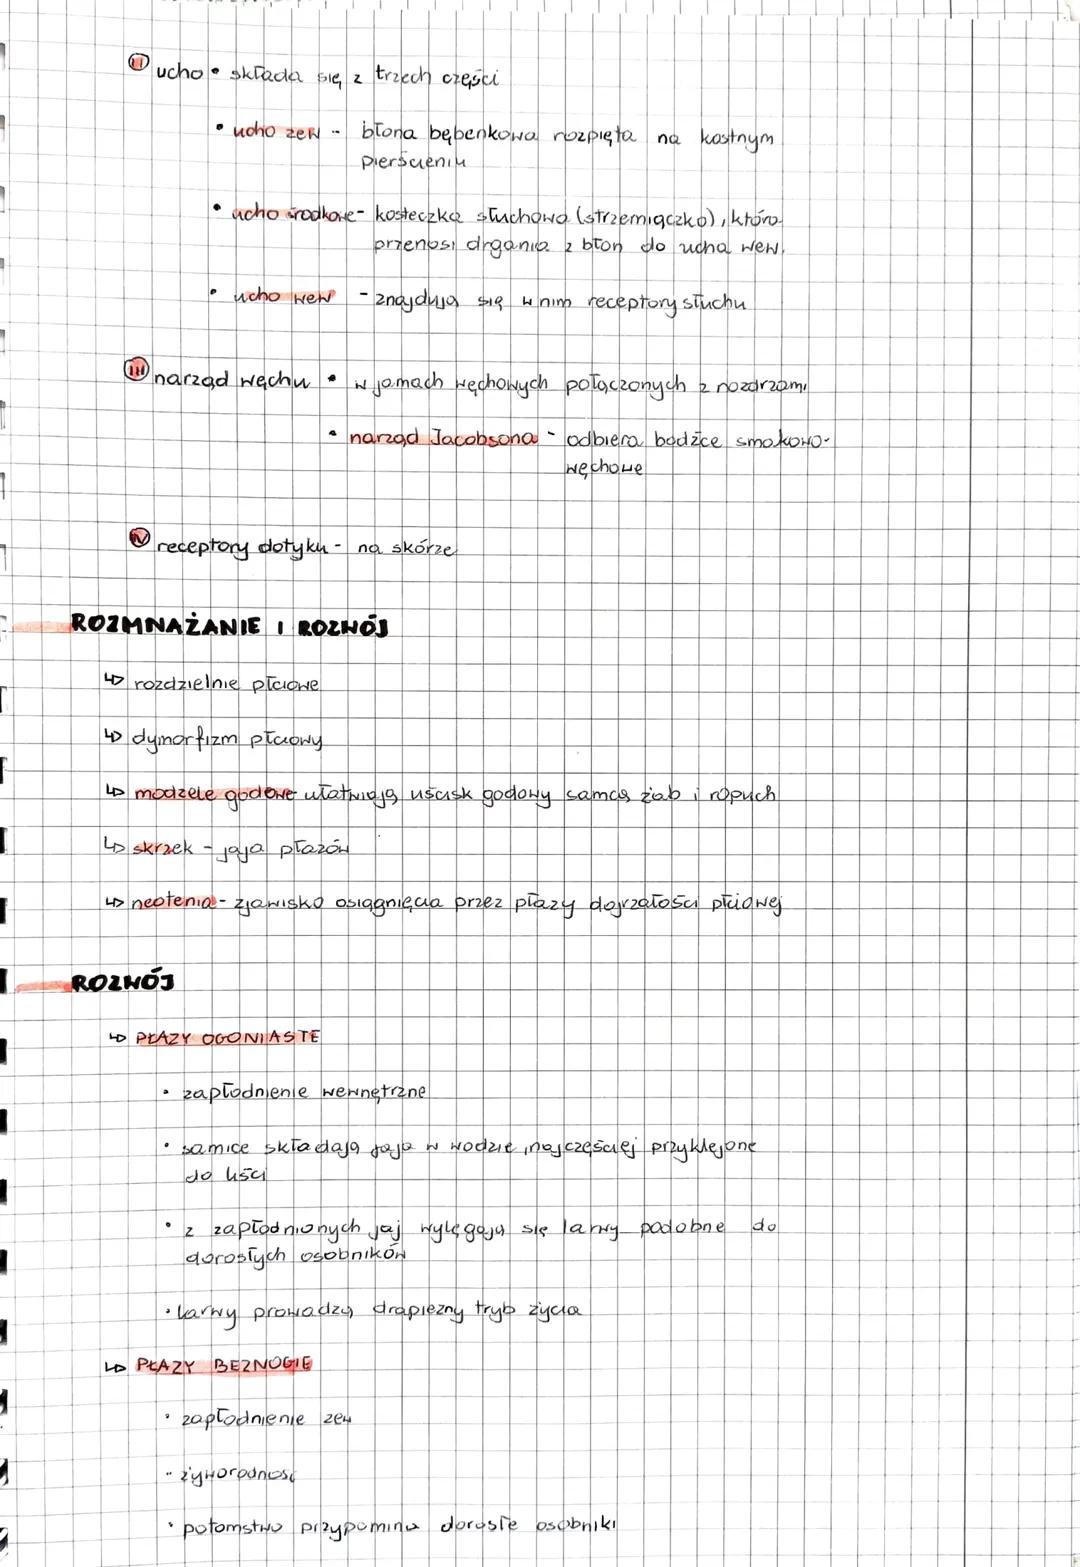 II ucho • składa się z trzech części
• ucho zew - błona bębenkowa rozpięta na kostnym
pierścieniu
• ucho środkowe - kosteczka słuchowa (strzemiączko), która
przenosi drgania z błon do ucha wew.
• ucho wew - znajdują się w nim receptory słuchu
III narząd węchu • w jamach węchowych połączonych z nozdrzami
• narząd Jacobsona - odbiera bodźce smakowo-
węchowe
IV receptory dotyku - na skórze
ROZMNAŻANIE I ROZWÓJ
↳ rozdzielnie płciowe
↳ dymorfizm płciowy
↳ modzele godowe ułatwiają uścisk godowy samca żab i ropuch
↳ skrzek - jaja płazów
↳ neotenia - zjawisko osiągnięcia przez płazy dojrzałości płciowej
ROZWÓJ
↳ PŁAZY OGONIASTE
• zapłodnienie wewnętrzne
• samice składają jaja w wodzie, najczęściej przyklejone
do liści
• z zapłodnionych jaj wylęgają się larwy podobne do
dorosłych osobników
• larwy prowadzą drapieżny tryb życia
↳ PŁAZY BEZNOGIE
• zapłodnienie zew
• żyworodność
• potomstwo przypomina dorosłe osobniki